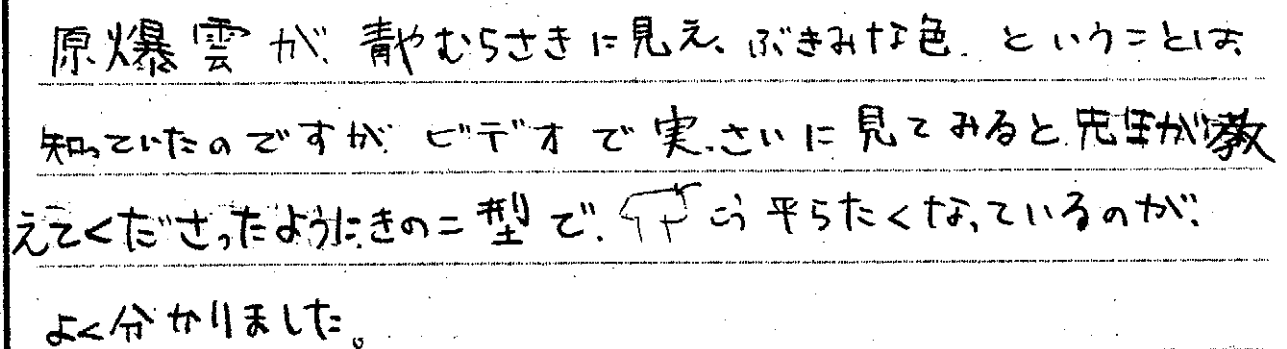 原爆雲が、青やむらさきに見え、ぶきみな色、ということは、
知っていたのですが、ビデオで実さいに見てみると、先生が教
えてくださったように、きのこ型で、こう平らたくなっているのが、
よく分かりました。